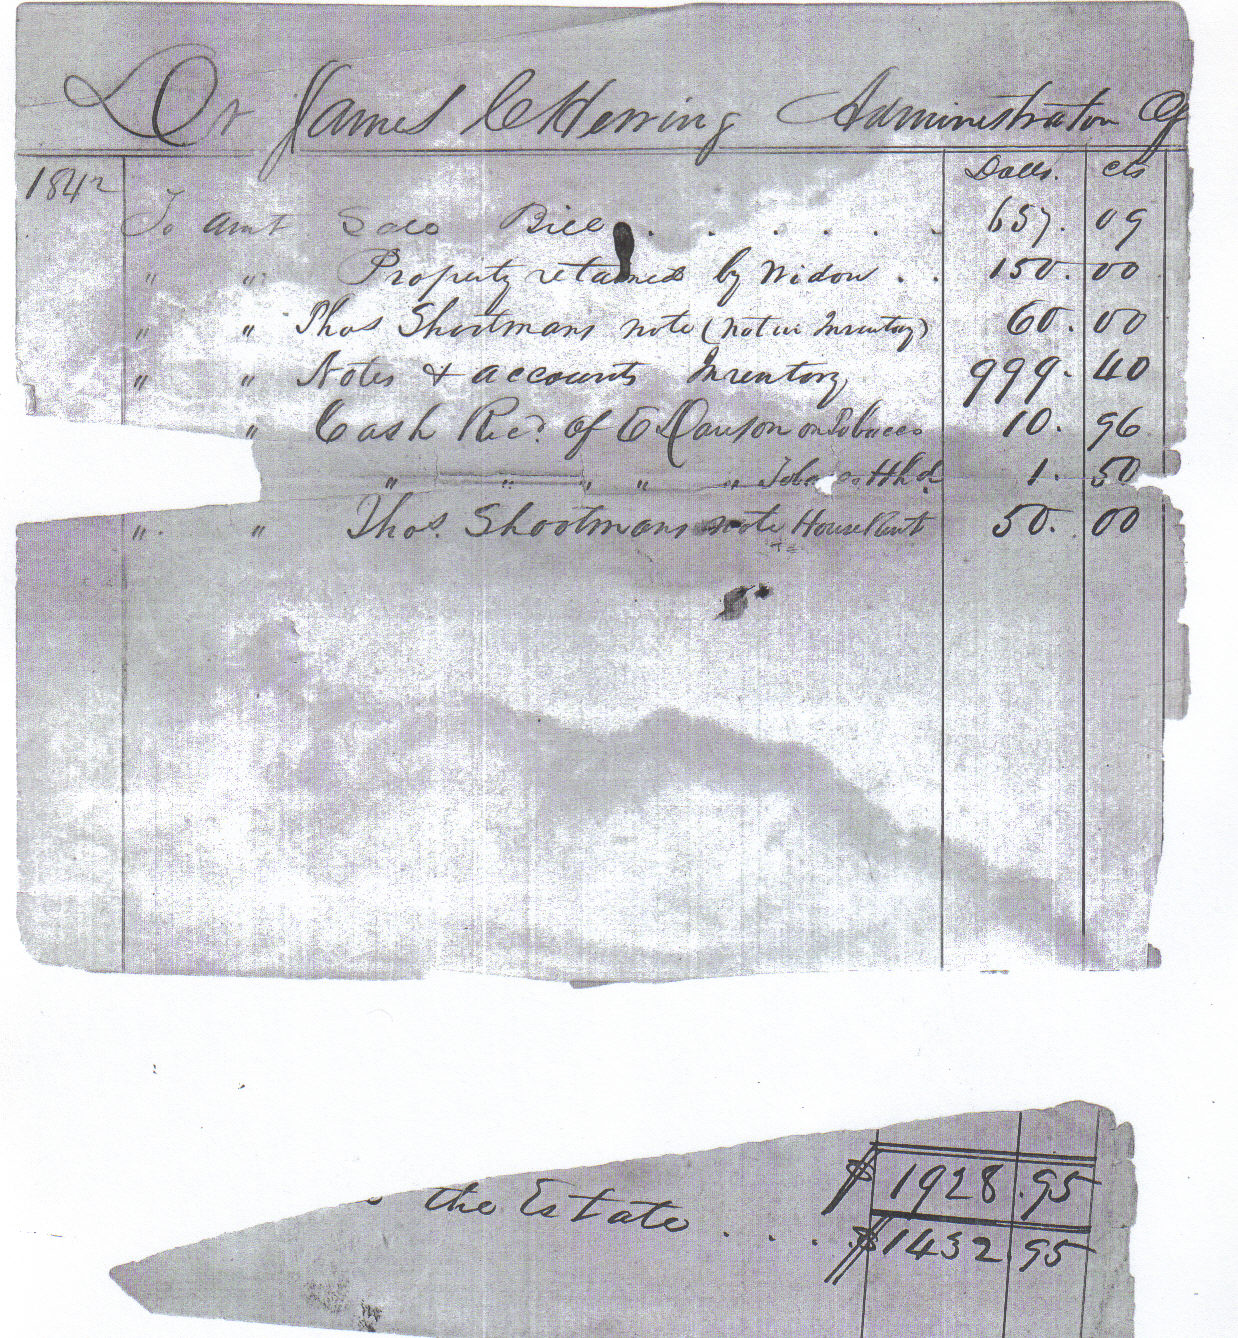 Dr James C Herring Administrator Of
1842 Dolls. cts
To amt Sale Bill . . . . . . 657. 09
" " Property retained by Widow . . 150. 00
" " Thos Shootmans note (not in Inventory) 60. 00
" " Notes & accounts Inventory 999. 40
" Cash Recd. of E Dawson on Tobacco 10. 96
" " " " " Toba Hhd 1. 50
" " Thos. Shootmans note House Rent 50. 00
$ 1928.95
the Estate . . . . $ 1432.95